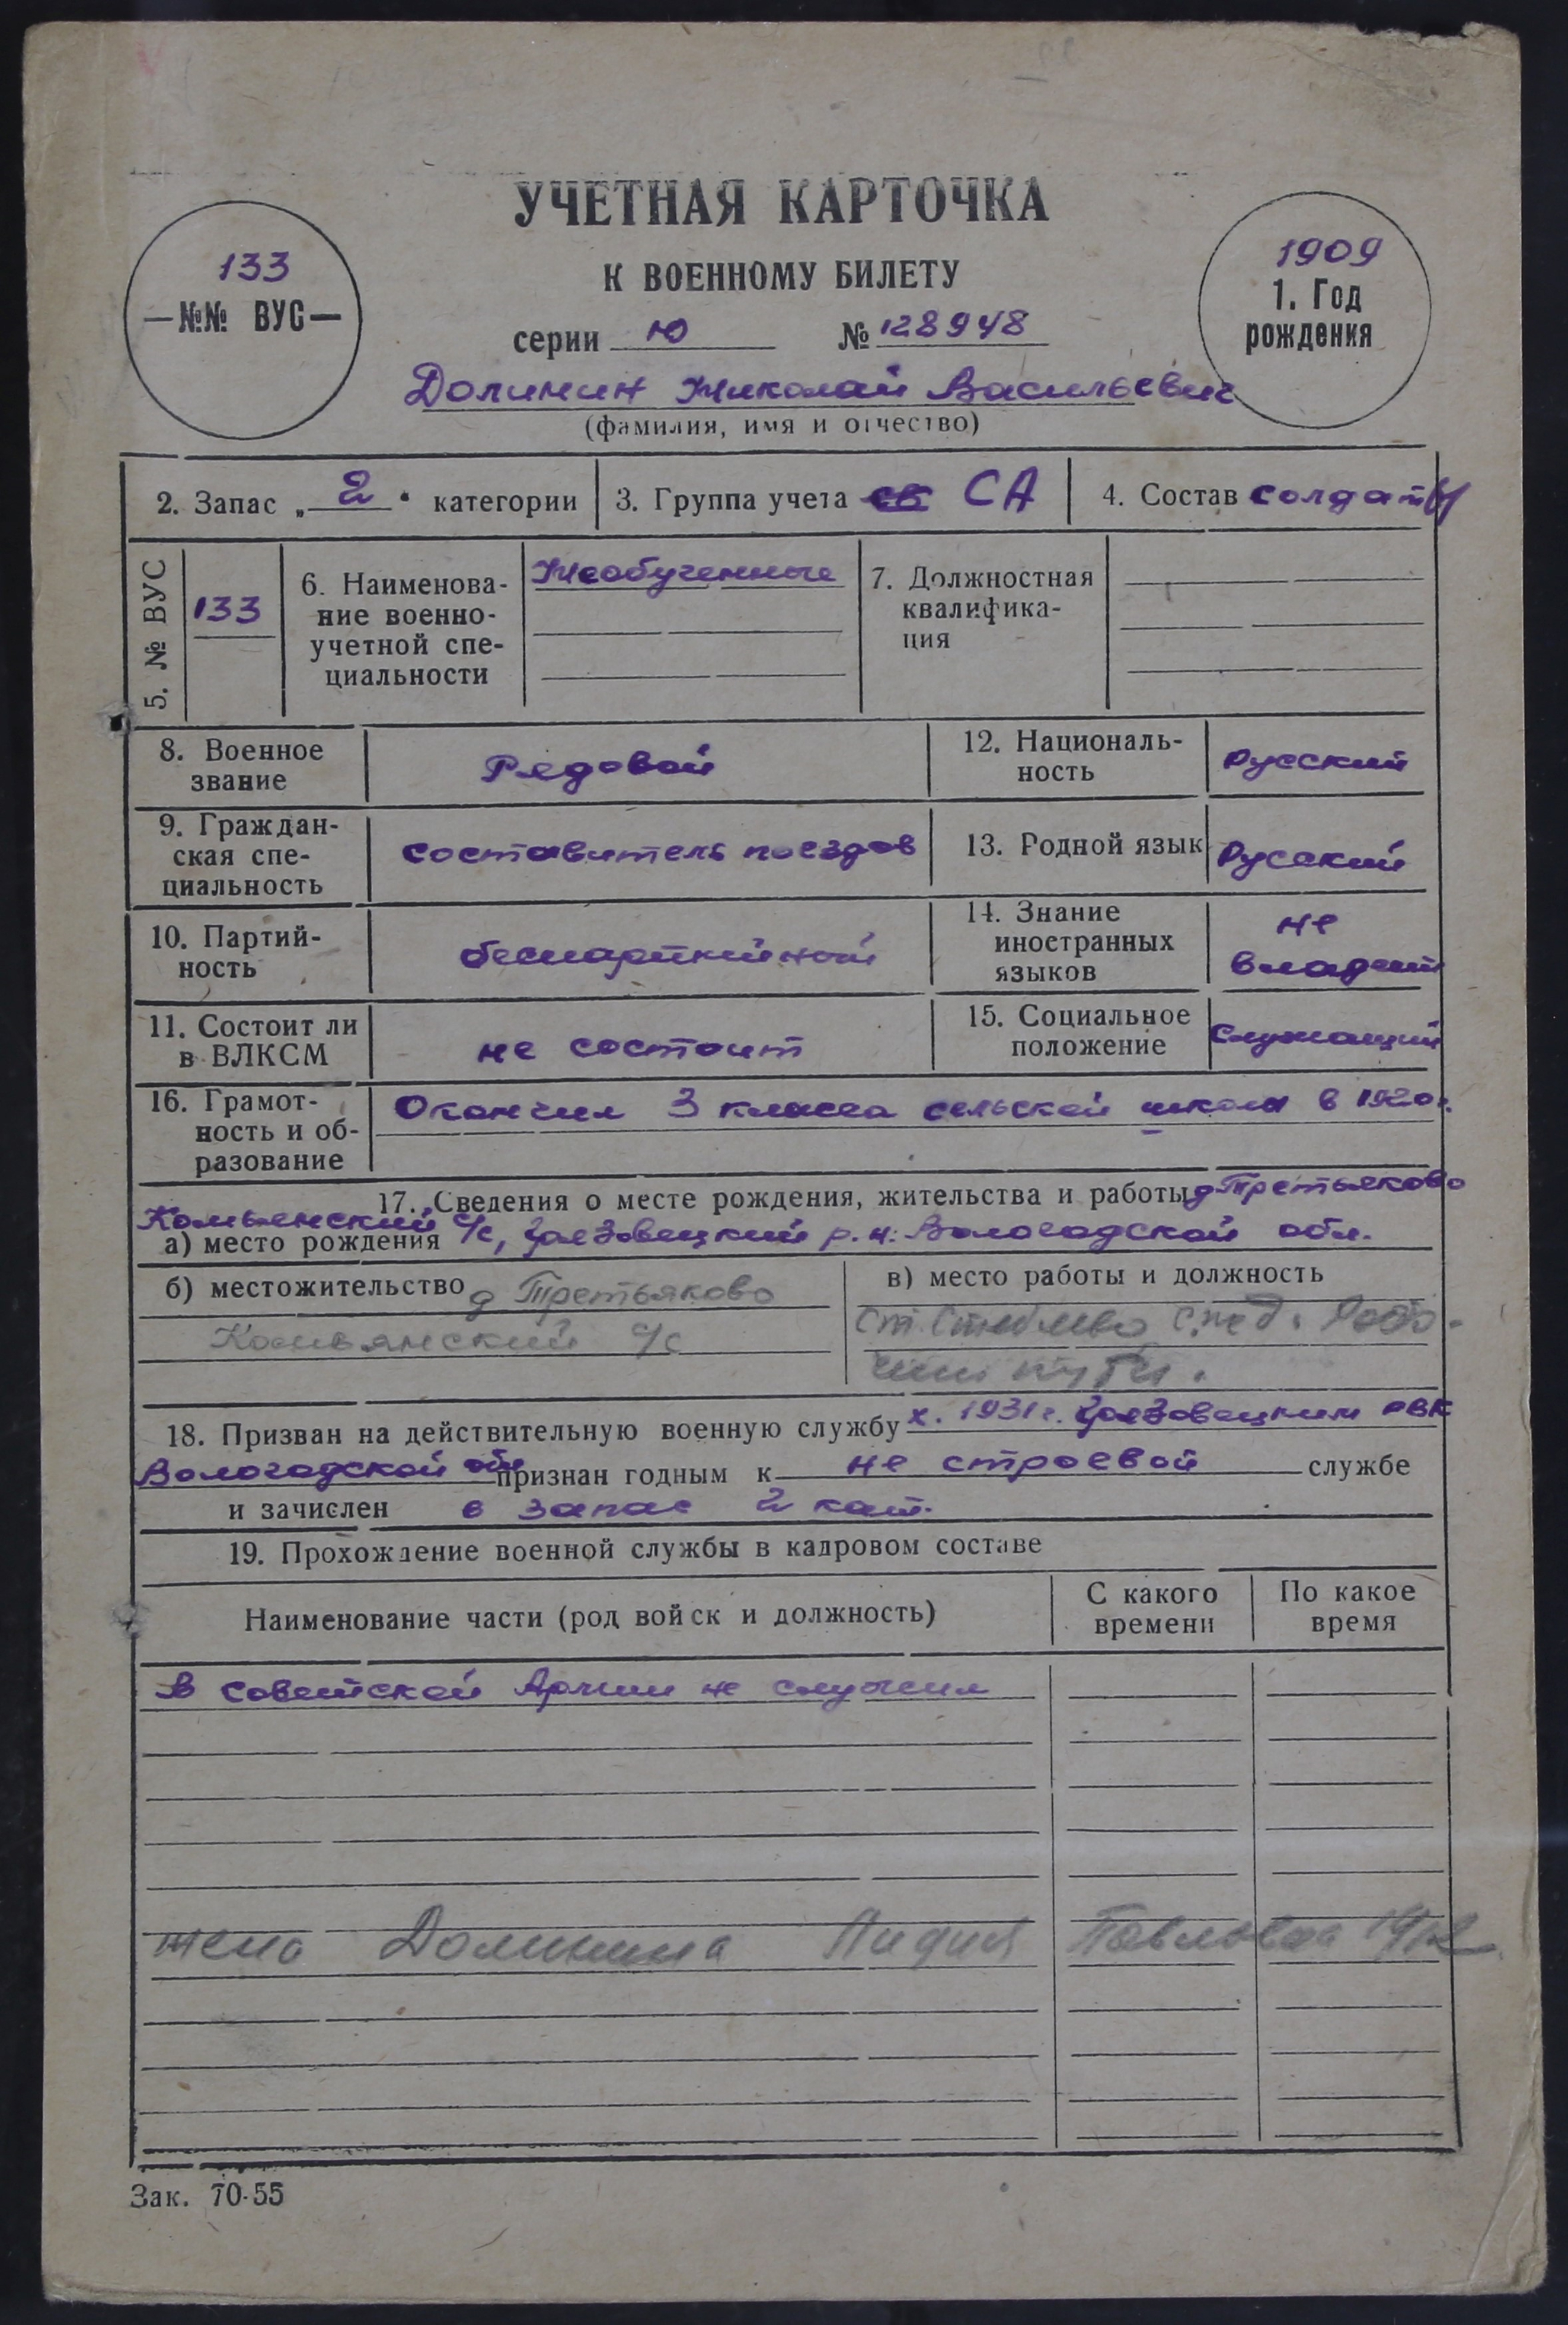 УЧЕТНАЯ КАРТОЧКА
133
—№№ ВУС—
К ВОЕННОМУ БИЛЕТУ
1909
1. Год
рождения
серии Ю № 128948
Долинин Николай Васильевич
(фамилия, имя и отчество)
2. Запас „2“ категории
3. Группа учета св СА
4. Состав солдаты
5. № ВУС
133
6. Наименова-
ние военно-
учетной спе-
циальности
Необученные
7. Должностная
квалифика-
ция
8. Военное
звание
Рядовой
12. Националь-
ность
Русский
9. Граждан-
ская спе-
циальность
составитель поездов
13. Родной язык
Русский
10. Партий-
ность
беспартийный
14. Знание
иностранных
языков
не
владеет
11. Состоит ли
в ВЛКСМ
не состоит
15. Социальное
положение
Служащий
16. Грамот-
ность и об-
разование
Окончил 3 класса сельской школы в 1920г.
17. Сведения о месте рождения, жительства и работы д Третьяково
Комьянский с/с, Грязовецкий р.н. Вологодской обл.
а) место рождения
б) местожительство д Третьяково
Комьянский с/с
в) место работы и должность
ст.
пути.
18. Призван на действительную военную службу X. 1931г. Грязовецким РВК
Вологодской обл признан годным к не строевой службе
и зачислен в запас 2 кат.
19. Прохождение военной службы в кадровом составе
Наименование части (род войск и должность)
С какого
времени
По какое
время
в советской Армии не служил
жена Долинина Лидия Павловна
Зак. 70-55